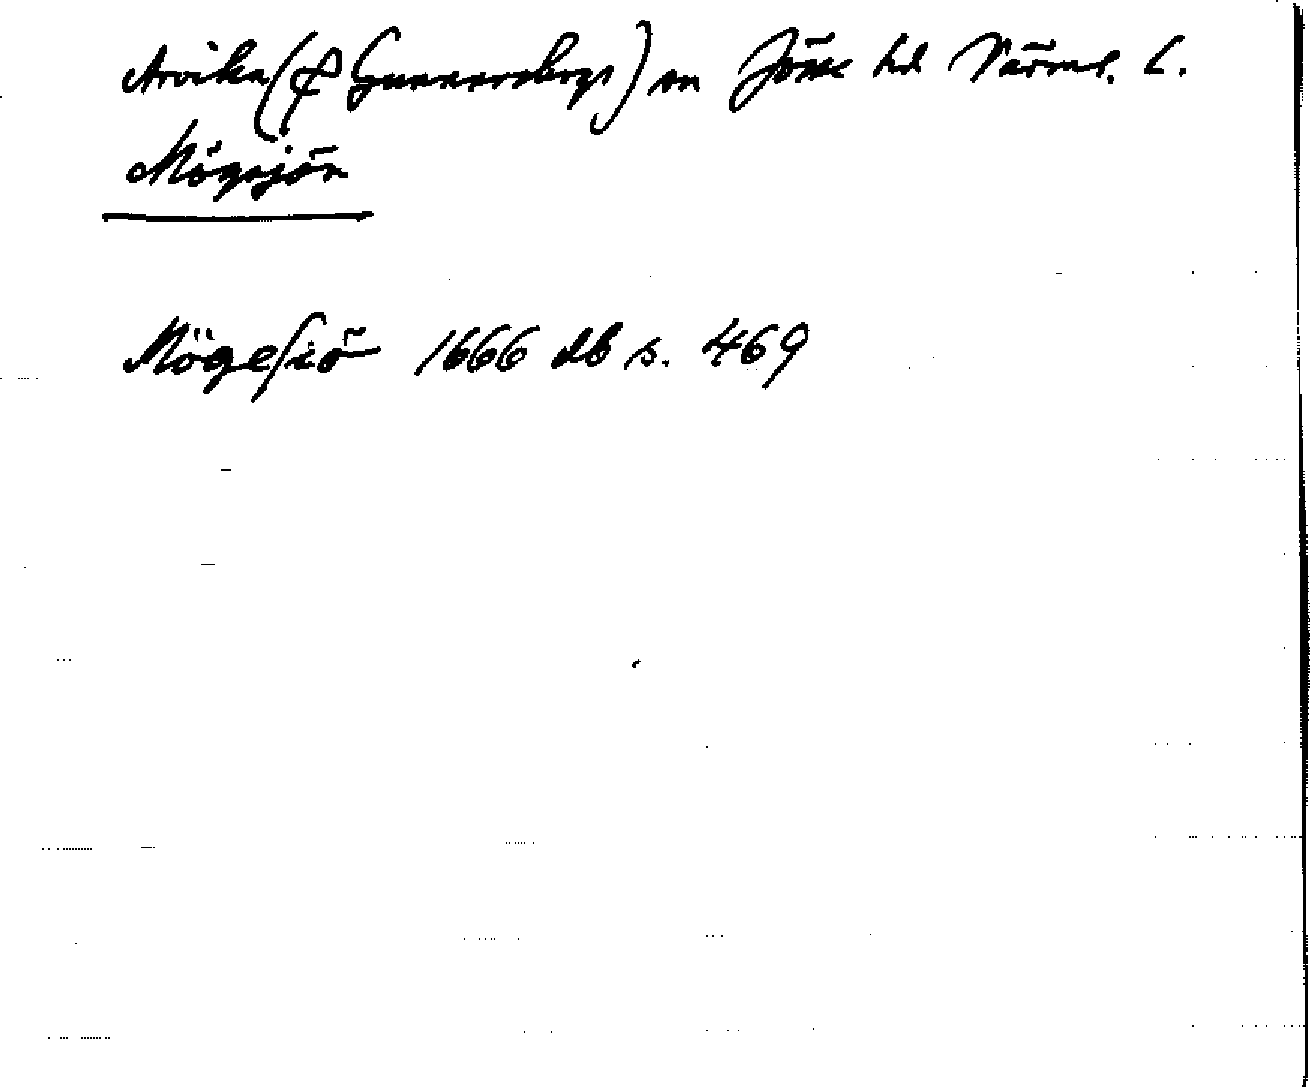 Arvika (& Gunnarsbogs) sn Jösse hd Värml. l.
Mögsjön
Mögesiö 1666 db s. 469